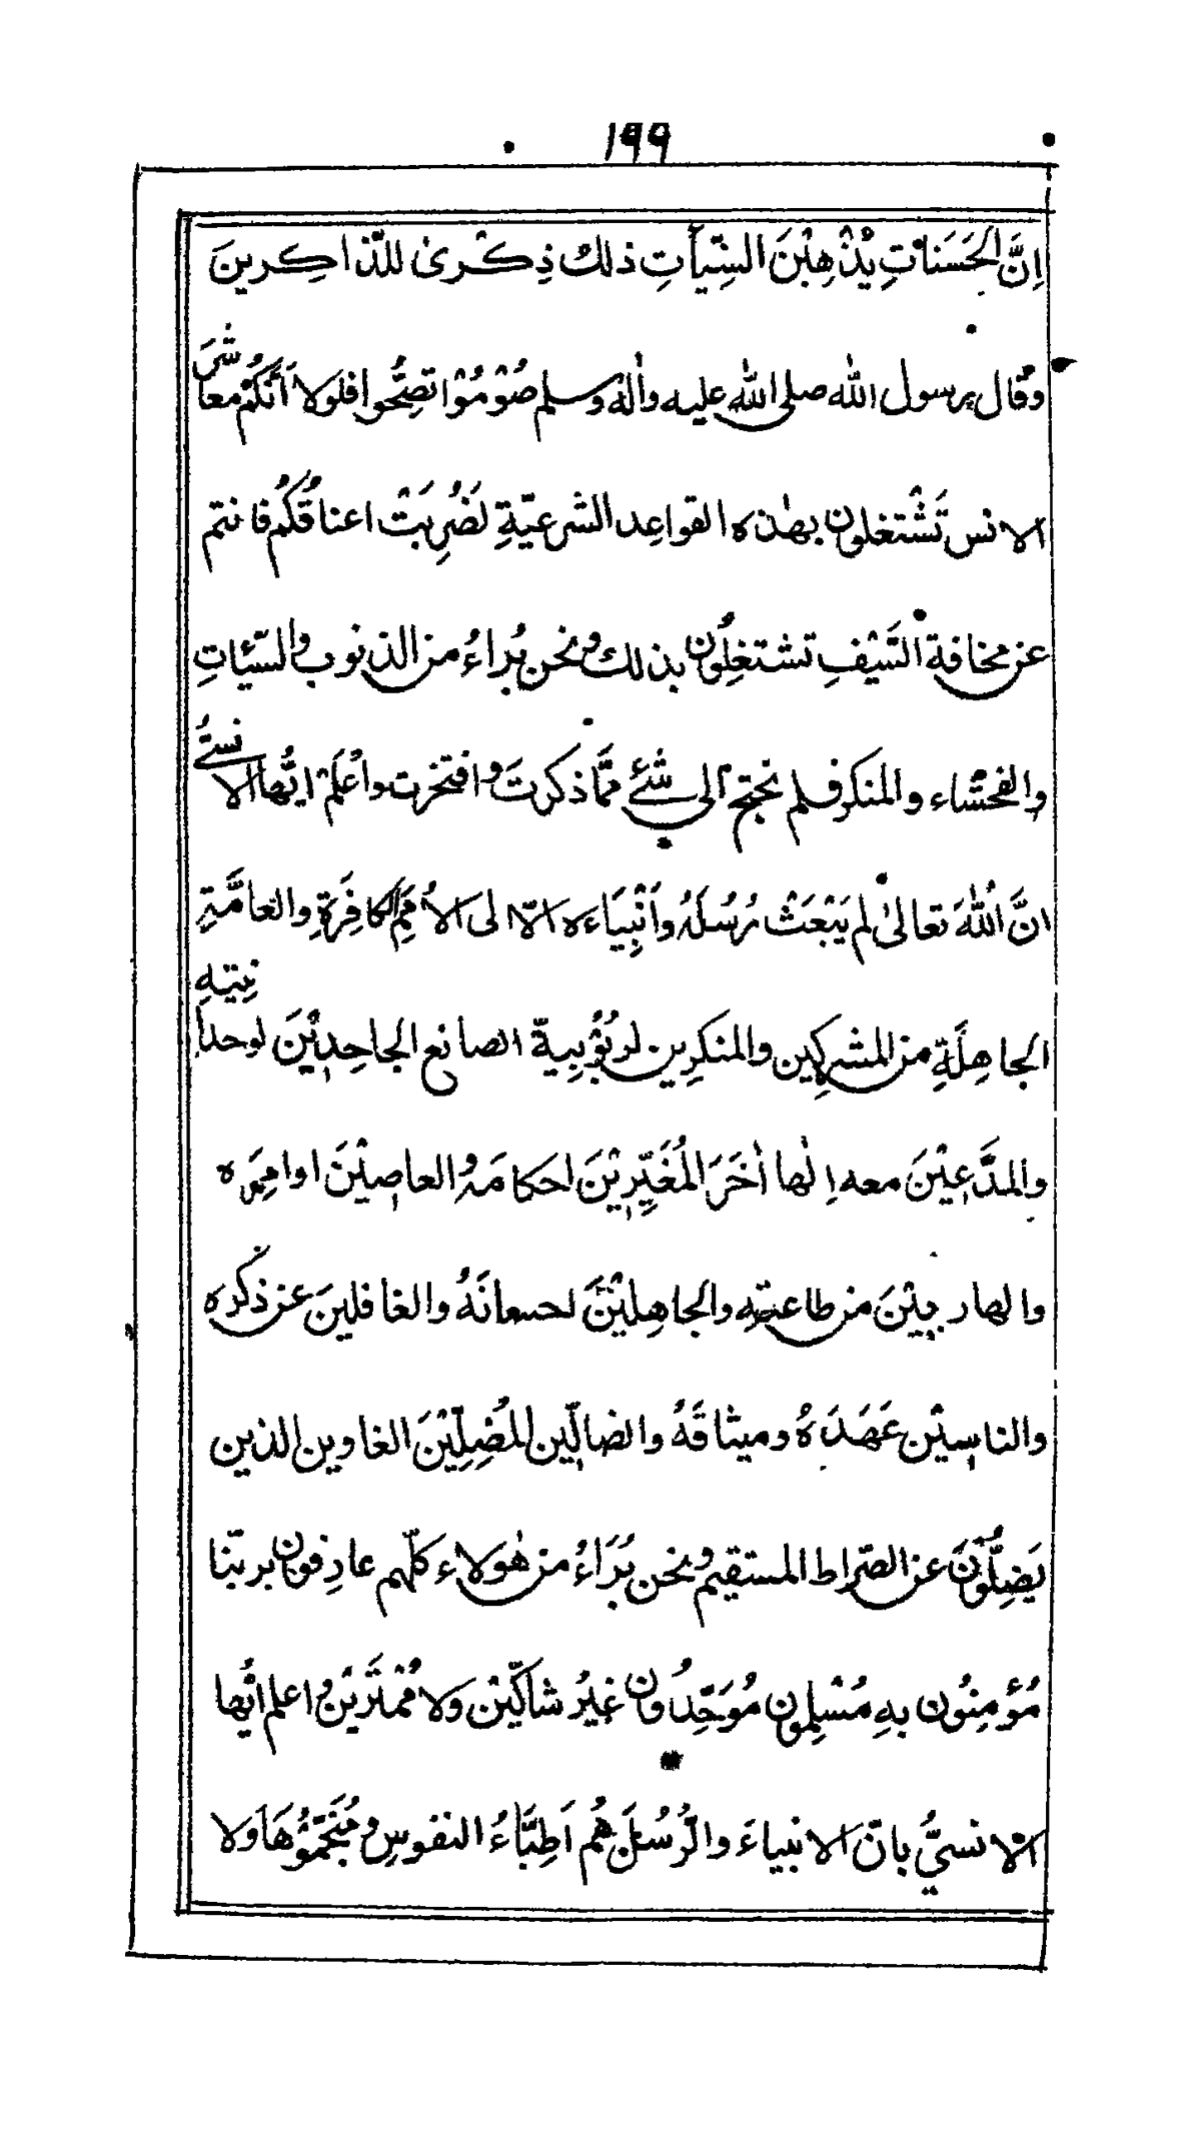 ١٩٩
اِنَّ الْحَسَنَاتِ يُذْهِبْنَ السَّيِّأٰتِ ذلك ذِكْرىٰ للذّاكِرينَ
وقَال رسول اللّٰه صلى اللّٰه عليه واٰلهٖ وسلم صُوْمُوْا تَصِحُّوا فلولا اَنَّكُمْ معاشَر
الانس تَشْتغلون بهٰذه القواعِد الشرعيّةِ لَضُرِبَتْ اعناقُكُم فانتم
عن مخافة السَّيْفِ تشتغِلُون بذلك ونحن بُراءُ من الذنوب والسّيّاٰتِ
والفحْشاء والمنكر فلم نحتج الى شَئٍ ممَّا ذكرتَ وافتخرت واعْلَمْ ايُّها الانسىُّ
انَّ اللّٰهَ تعالىٰ لم يَبْعَثْ رُسُلَهُ وَاَنْبِيَاءه الّا الى الاُمَمِ الكافِرَةِ والعامَّةِ
الجاهِلَةِ من المشركين والمنكرِين لربُوْبِيةّ الصانع الجاحِدِيْنَ لوحدانِيّتهِ
والمدَّعِيْنَ معه اِلٰهًا اٰخَرَ المُغَيِّرِيْنَ احكامَهُ والعاصِيْنَ اوامِرَه
والهاربِيْنَ من طاعتهِ والجاهِلِيْنَ لحسانَهُ والغافلينَ عن ذكره
والناسِيْن عَهَدَهُ وميثاقَهُ والضالّين المُضِلِّيْنَ الغاوين الذين
يَضِلُّوْنَ عن الصّراط المستقيم ونحن بُرَاءُ من هٰولاء كلّهم عارِفون بربّنا
مُؤْمِنُون بهِ مُسْلِمون مُوَحِّدُون غيرُ شاكّيْن وَلا مُمْتَرَيْن واعلم ايُّها
الانسىُّ بانّ الانبياءَ والرُّسُلَ هُم اَطِبَّاءُ النفوسِ ومُنَجِّمُوْهَا وَلا